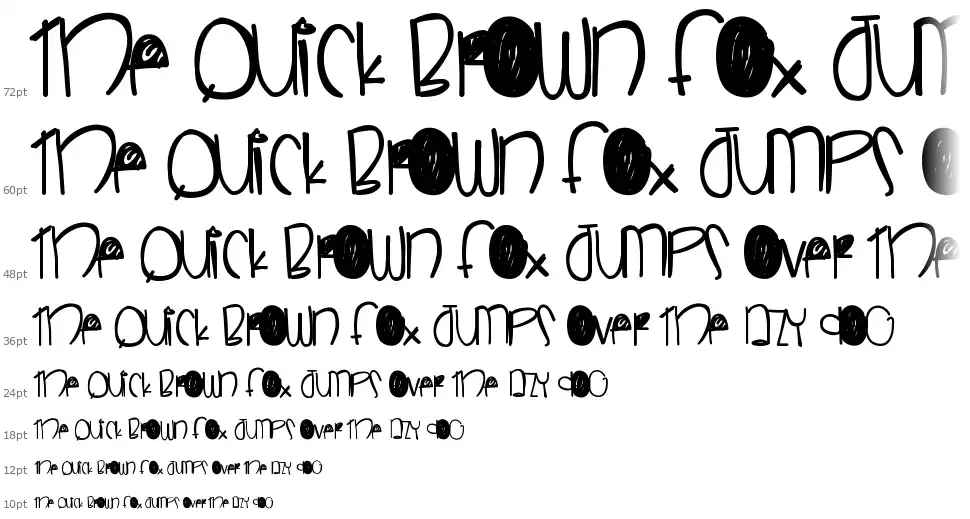 72pt the Quick Brown fox Jum
60pt the Quick Brown fox Jumps o
48pt the Quick Brown fox Jumps over the
36pt the Quick Brown fox Jumps over the LAZY dog
24pt the Quick Brown fox Jumps over the LAZY dog
18pt the Quick Brown fox Jumps over the LAZY dog
12pt the Quick Brown fox Jumps over the LAZY dog
10pt the Quick Brown fox Jumps over the LAZY dog